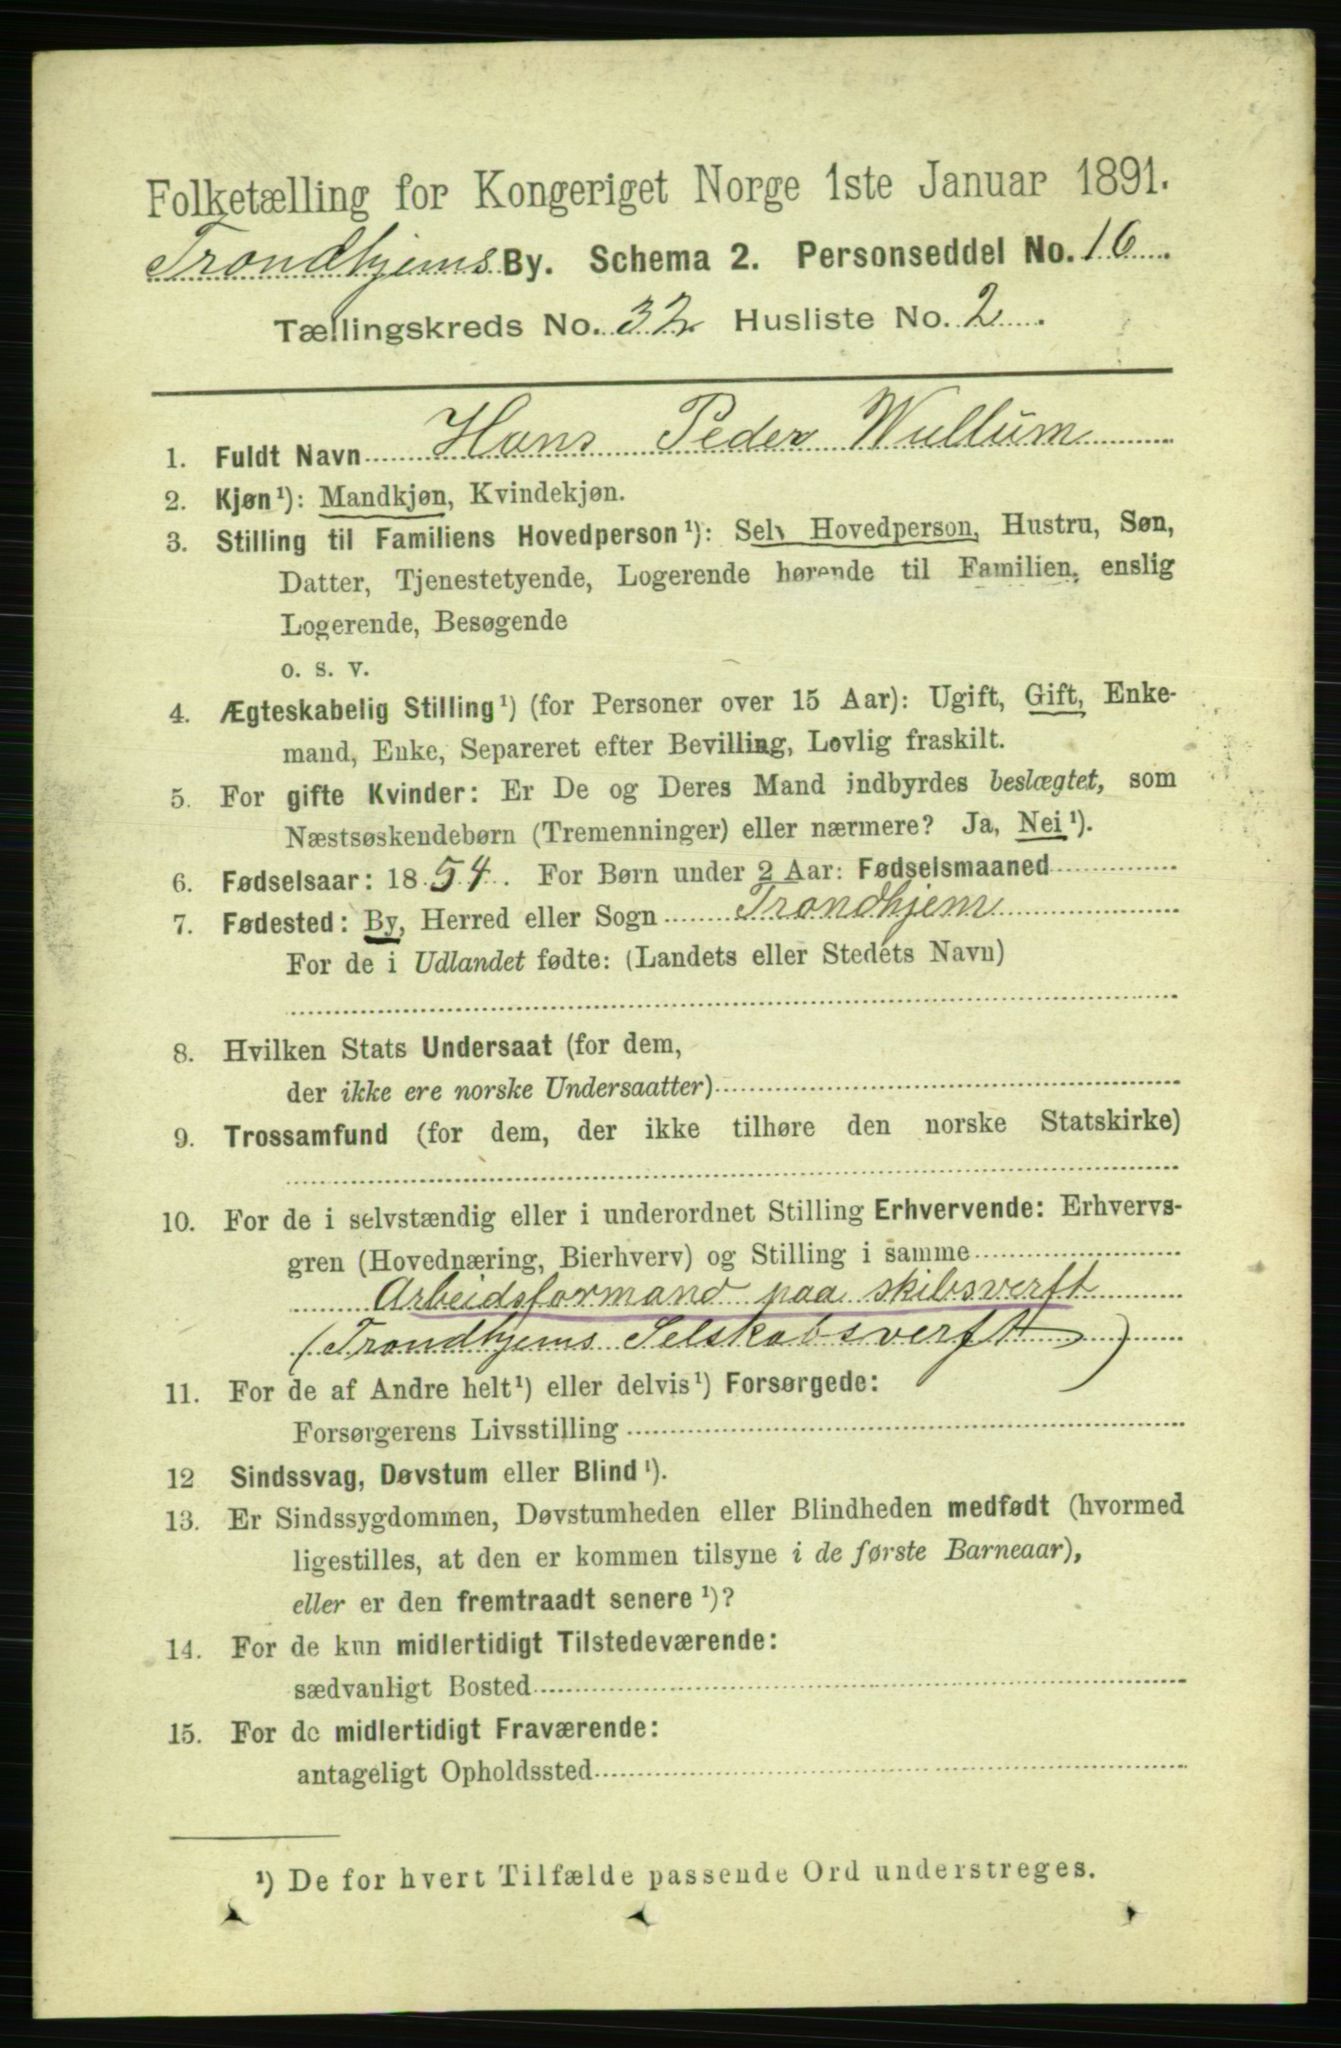 Folketælling for Kongeriget Norge 1ste Januar 1891.
Trondhjems By. Schema 2. Personseddel No. 16.
Tællingskreds No. 32 Husliste No. 2.
1. Fuldt Navn Hans Peder Wullum
2. Kjøn¹): Mandkjøn, Kvindekjøn.
3. Stilling til Familiens Hovedperson¹): Selv Hovedperson, Hustru, Søn,
Datter, Tjenestetyende, Logerende hørende til Familien, enslig
Logerende, Besøgende
o. s. v.
4. Ægteskabelig Stilling¹) (for Personer over 15 Aar): Ugift, Gift, Enke-
mand, Enke, Separeret efter Bevilling, Lovlig fraskilt.
5. For gifte Kvinder: Er De og Deres Mand indbyrdes beslægtet, som
Næstsøskendebørn (Tremenninger) eller nærmere? Ja, Nei¹).
6. Fødselsaar: 1854. For Børn under 2 Aar: Fødselsmaaned
7. Fødested: By, Herred eller Sogn Trondhjem
For de i Udlandet fødte: (Landets eller Stedets Navn)
8. Hvilken Stats Undersaat (for dem,
der ikke ere norske Undersaatter)
9. Trossamfund (for dem, der ikke tilhøre den norske Statskirke)
10. For de i selvstændig eller i underordnet Stilling Erhvervende: Erhvervs-
gren (Hovednæring, Bierhverv) og Stilling i samme
Arbeidsformand paa skibsverft
(Trondhjems Selskabsverft)
11. For de af Andre helt¹) eller delvis¹) Forsørgede:
Forsørgerens Livsstilling
12 Sindssvag, Døvstum eller Blind¹).
13. Er Sindssygdommen, Døvstumheden eller Blindheden medfødt (hvormed
ligestilles, at den er kommen tilsyne i de første Barneaar),
eller er den fremtraadt senere¹)?
14. For de kun midlertidigt Tilstedeværende:
sædvanligt Bosted
15. For de midlertidigt Fraværende:
antageligt Opholdssted
¹) De for hvert Tilfælde passende Ord understreges.